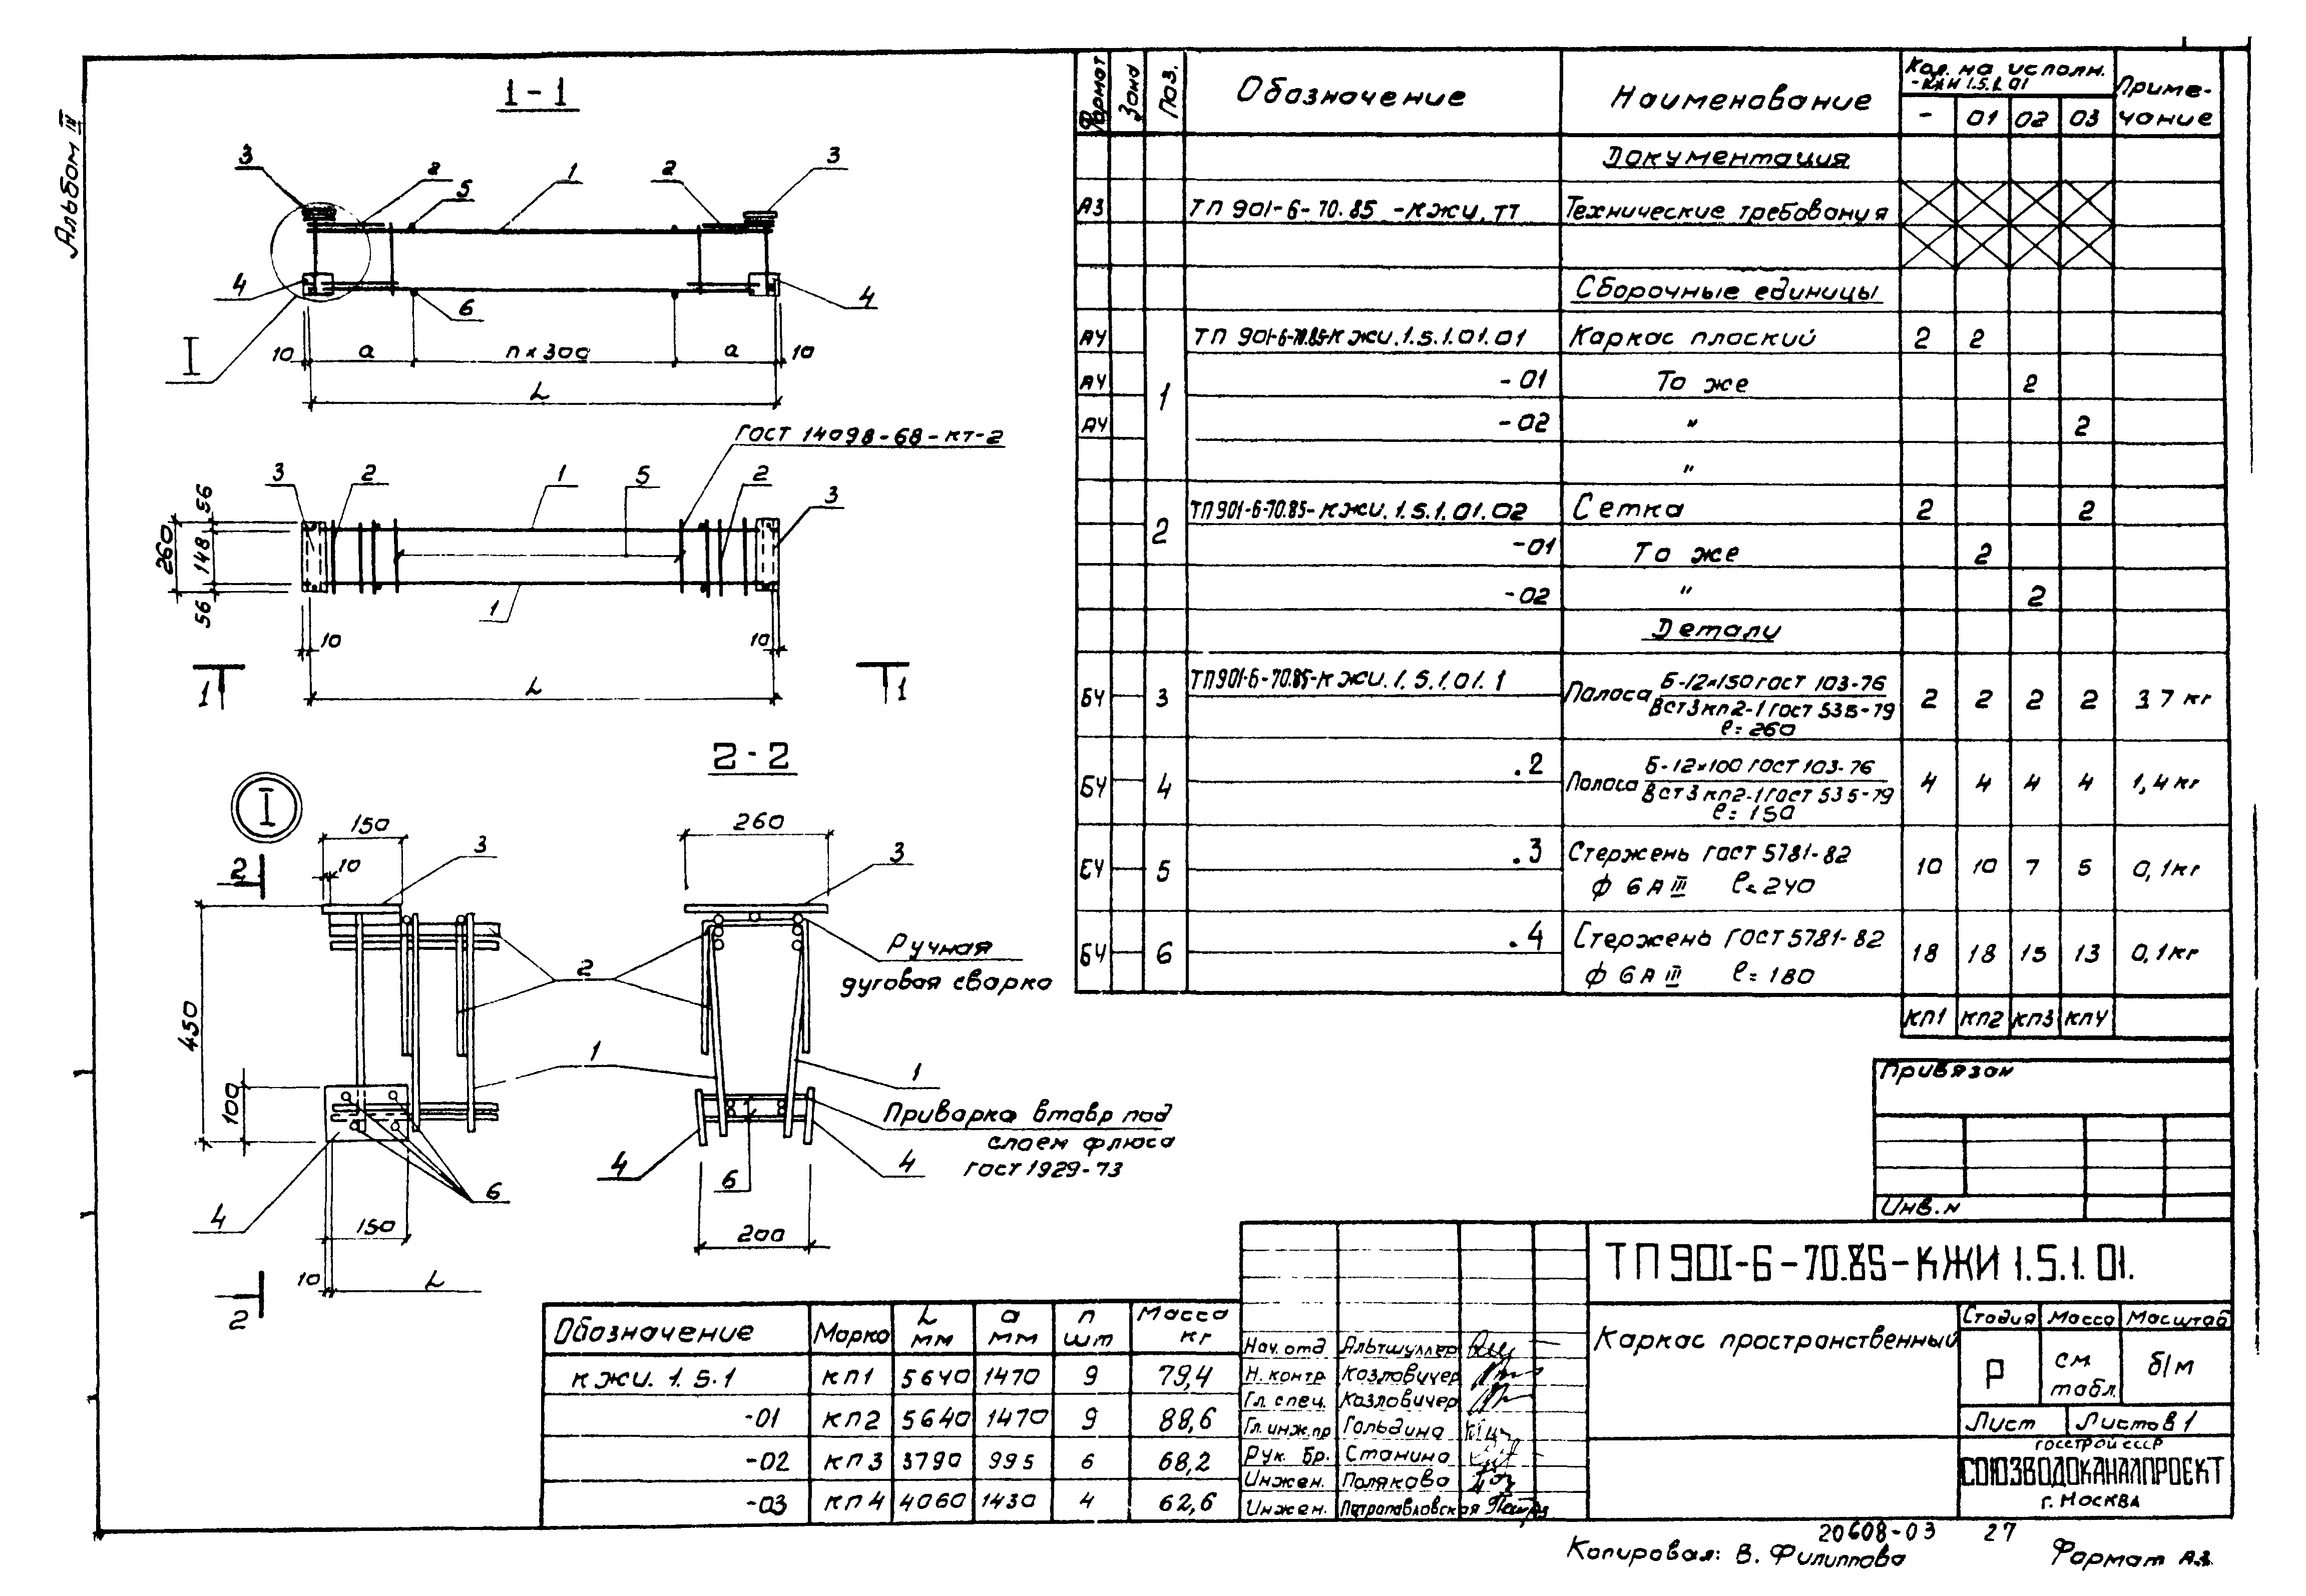 Альбом III
1-1
3
2
5
1
2
3
4
6
4
I
10 a n×300 a 10
L
ГОСТ 14098-68-кт-2
3 2 1 5 2 3
56
148
260
56
1
10 10
L
1 1
2-2
I
150
10
3
2
450
100
2
1
4
6
150
10 L
2
260
3
Ручная
дуговая сварка
1
Приварка втавр под
слоем флюса
ГОСТ 1929-73
4
6
4
200
Формат Зона Поз. Обозначение Наименование Кол. на исполн. -КЖИ 1.5.1.01 Приме-
чание
- 01 02 03
Документация
А3 ТП 901-6-70.85 -КЖИ.ТТ Технические требования
Сборочные единицы
А4 1 ТП 901-6-70.85-КЖИ.1.5.1.01.01 Каркас плоский 2 2
А4 -01 То же 2
А4 -02 " 2
"
2 ТП901-6-70.85-КЖИ.1.5.1.01.02 Сетка 2 2
-01 То же 2
-02 " 2
Детали
БЧ 3 ТП901-6-70.85-КЖИ.1.5.1.01.1 Полоса Б-12×150 ГОСТ 103-76 2 2 2 2 3,7 кг
ВСт3кп2-1 ГОСТ 535-79
ℓ=260
БЧ 4 .2 Полоса Б-12×100 ГОСТ 103-76 4 4 4 4 1,4 кг
ВСт3кп2-1 ГОСТ 535-79
ℓ=150
БЧ 5 .3 Стержень ГОСТ 5781-82 10 10 7 5 0,1кг
ф 6АIII ℓ=240
БЧ 6 .4 Стержень ГОСТ 5781-82 18 18 15 13 0,1кг
ф 6АIII ℓ=180
КП1 КП2 КП3 КП4
Привязан
Инв.н
Обозначение Марка L мм a мм n шт Масса кг
КЖИ.1.5.1 КП1 5640 1470 9 79,4
-01 КП2 5640 1470 9 88,6
-02 КП3 3790 995 6 68,2
-03 КП4 4060 1430 4 62,6
Нач.отд Альтшуллер
Н.контр Козловичер
Гл.спец. Козловичер
Гл.инж.пр Гольдина
Рук. Бр. Станина
Инжен. Полякова
Инжен. Петропавловская
ТП 901-6-70.85-КЖИ 1.5.1.01.
Каркас пространственный
Стадия Масса Масштаб
Р см. табл. б/м
Лист Листов 1
ГОССТРОЙ СССР
СОЮЗВОДОКАНАЛПРОЕКТ
г. МОСКВА
20608-03 27
Копировал: В. Филиппова Формат А3